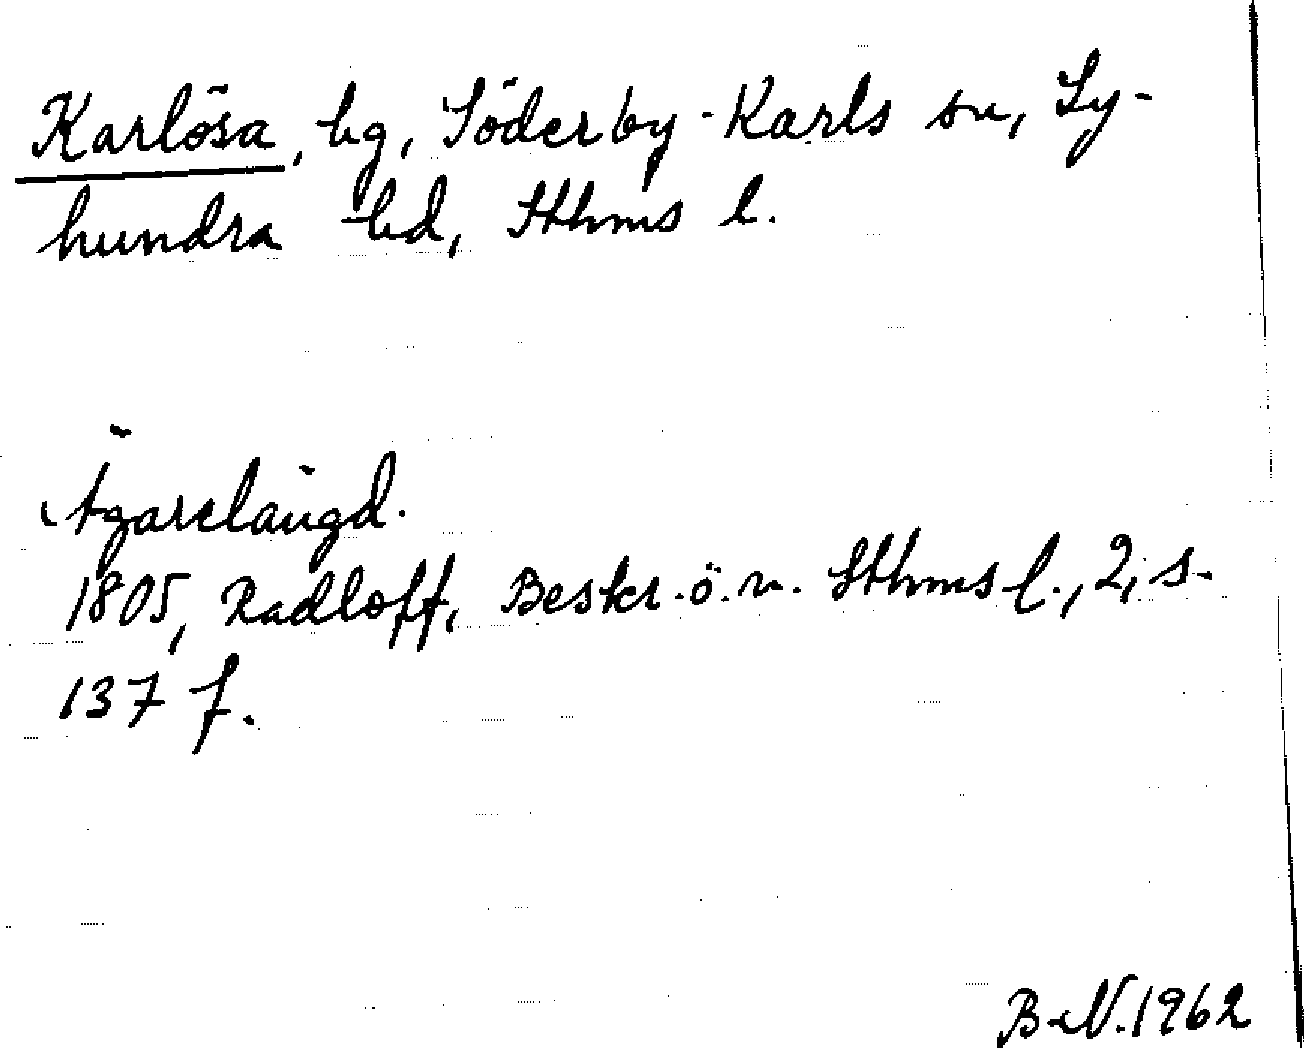 Karlösa, hg, Söderby-Karls sn, Ly-
hundra hd, Sthms l.
Ägarelängd.
1805, Radloff, Beskr. ö. n. Sthms l., 2, s.
137 f.
B-N. 1962